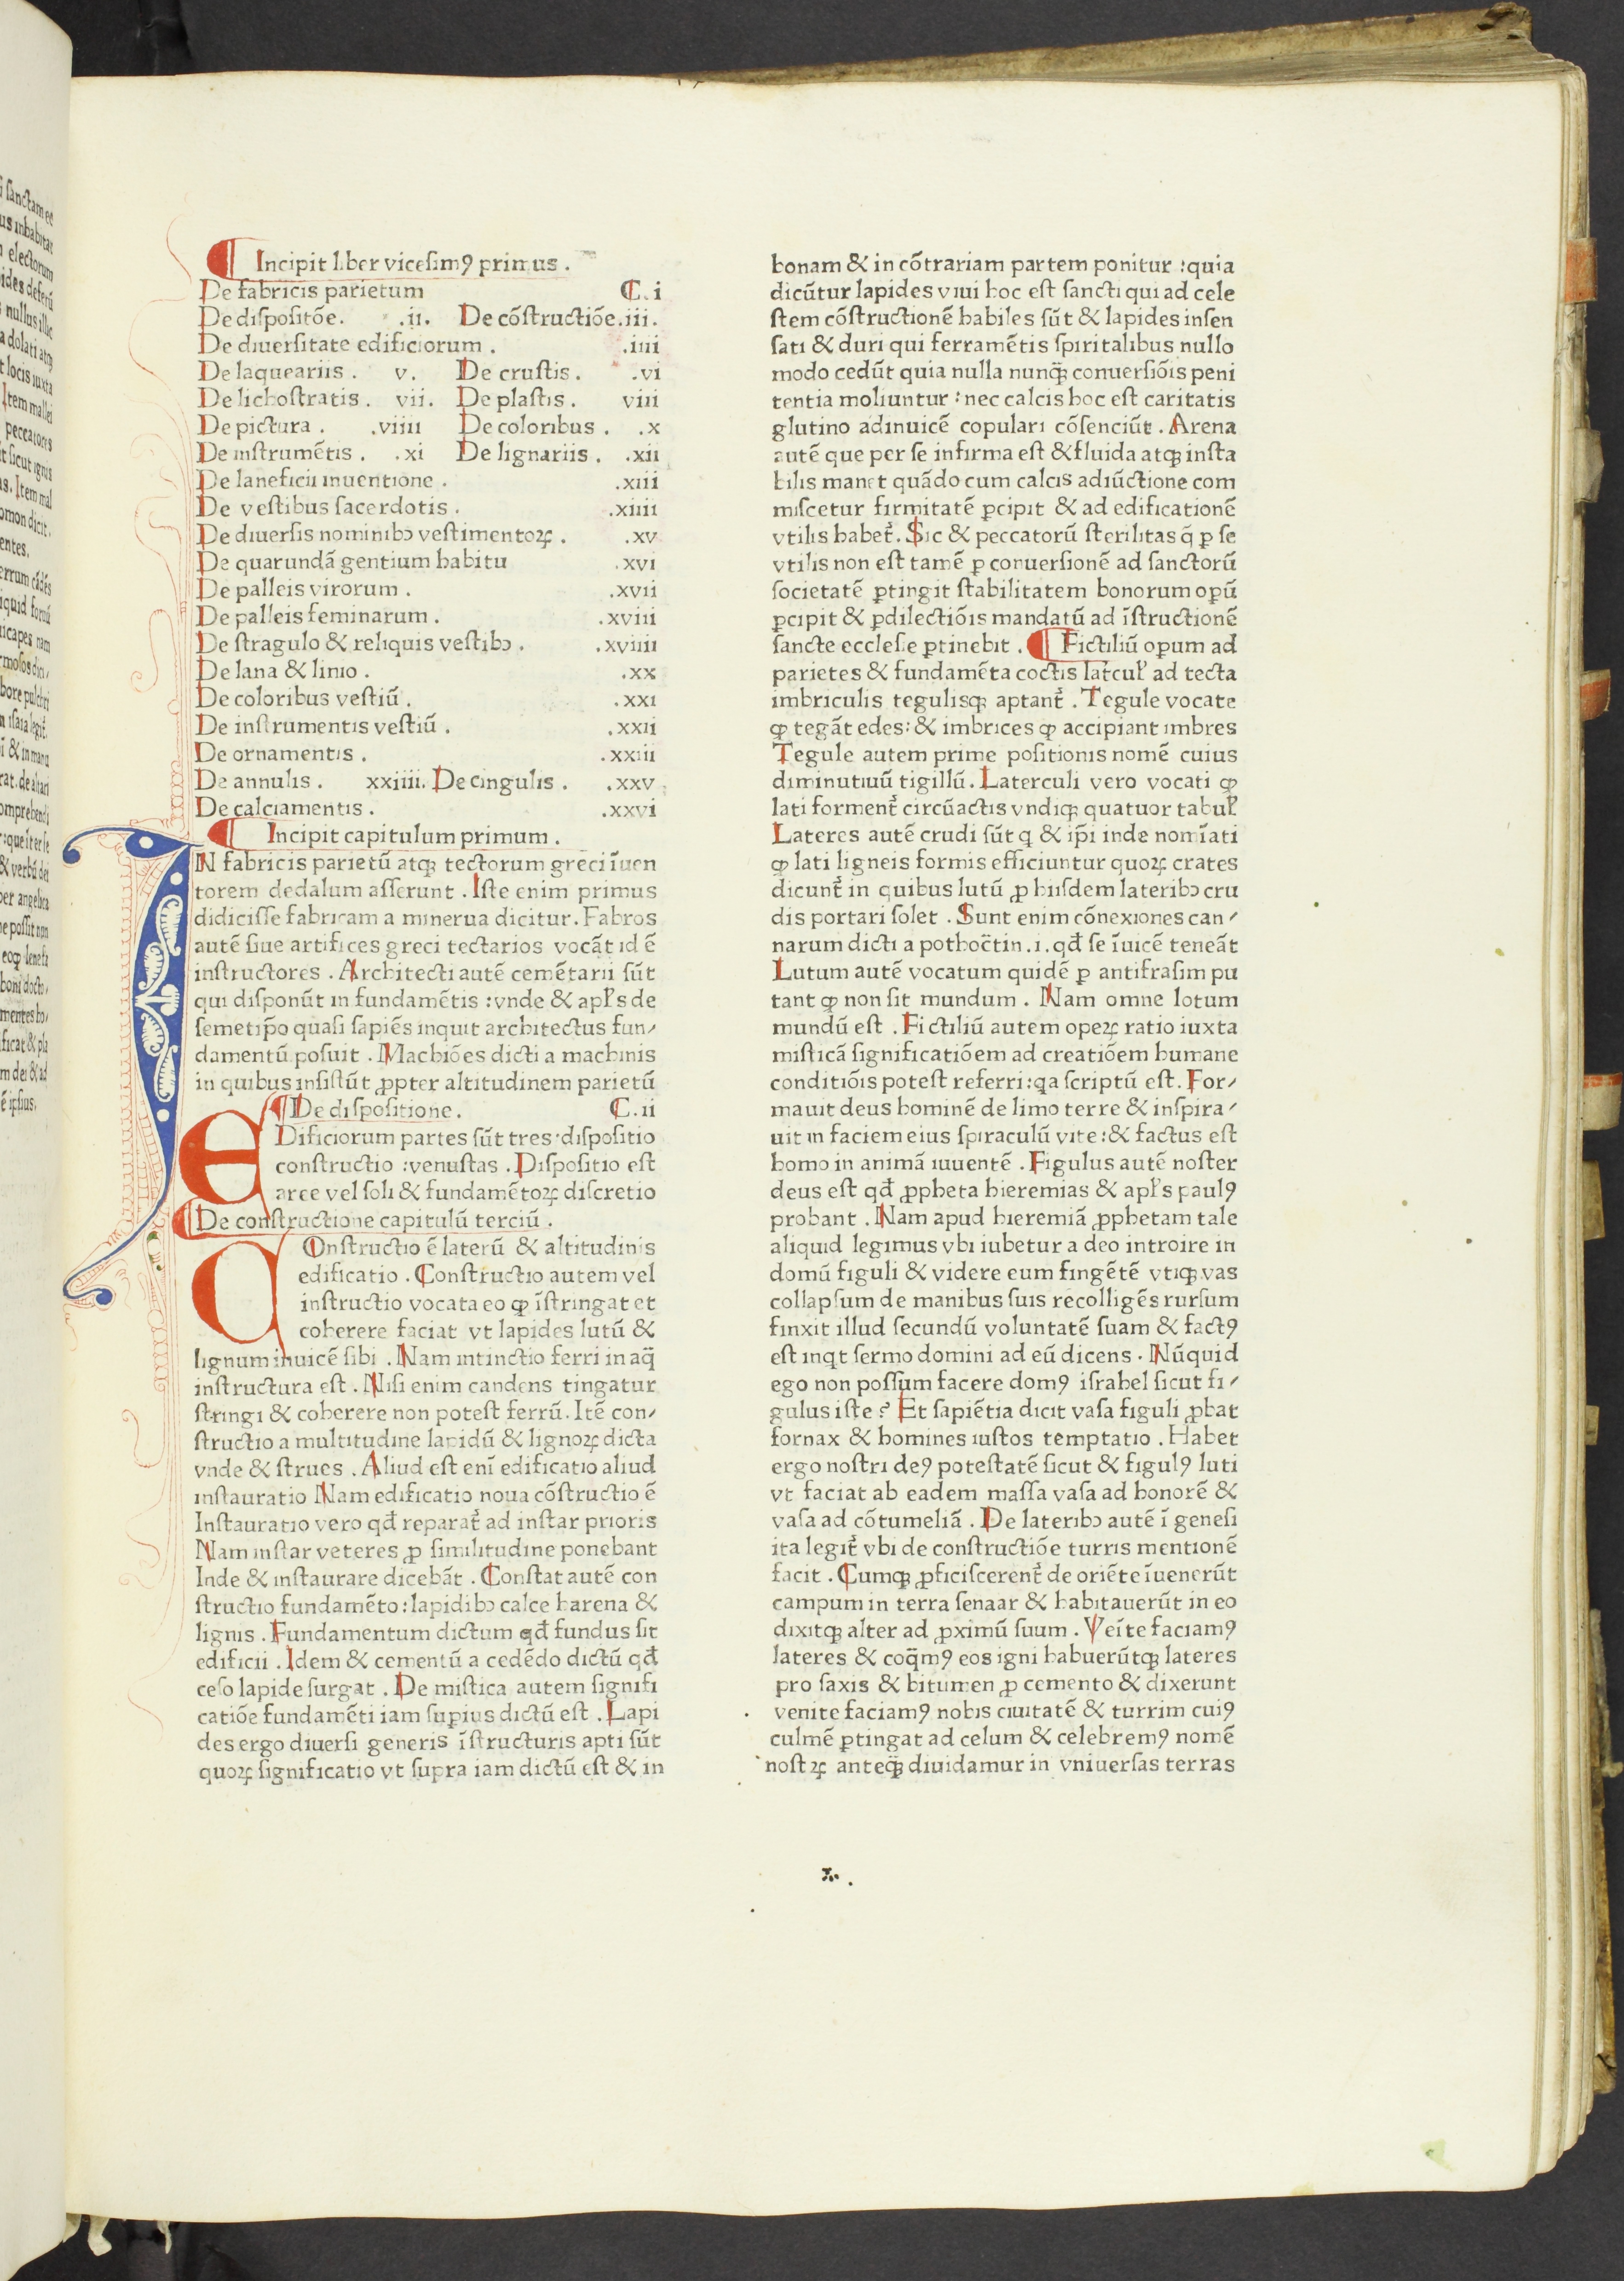 Incipit liber vicesimꝰ primus .
De fabricis parietum C.i
De dispositõe. .ii. De cõstructiõe.iii.
De diuersitate edificiorum . .iiii
De laqueariis . v. De crustis . .vi
De lichostratis . vii. De plastis . viii
De pictura . .viiii De coloribus . .x
De instrumẽtis . .xi De lignariis . .xii
De laneficii inuentione . .xiii
De vestibus sacerdotis . .xiiii
De diuersis nominibꝫ vestimentoꝝ . .xv
De quarundã gentium habitu .xvi
De palleis virorum . .xvii
De palleis feminarum . .xviii
De stragulo & reliquis vestibꝫ . .xviiii
De lana & linio . .xx
De coloribus vestiũ . .xxi
De instrumentis vestiũ . .xxii
De ornamentis . .xxiii
De annulis . xxiiii. De cingulis . .xxv
De calciamentis . .xxvi
Incipit capitulum primum .
IN fabricis parietũ atqꝫ tectorum greci ĩuen
torem dedalum asserunt . Iste enim primus
didicisse fabricam a minerua dicitur. Fabros
autẽ siue artifices greci tectarios vocãt id ẽ
instructores . Architecti autẽ cemẽtarii sũt
qui disponũt in fundamẽtis : vnde & apl̃s de
semetip̃o quasi sapiẽs inquit architectus fun/
damentũ posuit . Machiões dicti a machinis
in quibus insistũt ꝓpter altitudinem parietũ
De dispositione. C.ii
eDificiorum partes sũt tres : dispositio
constructio : venustas . Dispositio est
aree vel soli & fundamẽtoꝝ discretio
De constructione capitulũ terciũ .
COnstructio ẽ laterũ & altitudinis
edificatio . Constructio autem vel
instructio vocata eo ꝙ ĩstringat et
coherere faciat vt lapides lutũ &
lignum inuicẽ sibi . Nam intinctio ferri in aq̃
instructura est . Nisi enim candens tingatur
stringi & coherere non potest ferrũ. Itẽ con/
structio a multitudine lapidũ & lignoꝝ dicta
vnde & strues . Aliud est enĩ edificatio aliud
instauratio Nam edificatio noua cõstructio ẽ
Instauratio vero qd̃ reparat᷑ ad instar prioris
Nam instar veteres ꝓ similitudine ponebant
Inde & instaurare dicebãt . Constat autẽ con
structio fundamẽto : lapidibꝫ calce harena &
lignis . Fundamentum dictum qd̃ fundus sit
edificii . Idem & cementũ a cedẽdo dictũ qd̃
ceso lapide surgat . De mistica autem signifi
catiõe fundamẽti iam suꝑius dictũ est . Lapi
des ergo diuersi generis ĩstructuris apti sũt
quoꝝ significatio vt supra iam dictũ est & in
bonam & in cõtrariam partem ponitur : quia
dicũtur lapides viui hoc est sancti qui ad cele
stem cõstructionẽ habiles sũt & lapides insen
sati & duri qui ferramẽtis spiritalibus nullo
modo cedũt quia nulla nunq̃ꝫ conuersiõis peni
tentia moliuntur : nec calcis hoc est caritatis
glutino adinuicẽ copulari cõsenciũt . Arena
autẽ que per se infirma est & fluida atqꝫ insta
bilis manet quãdo cum calcis adiũctione com
miscetur firmitatẽ ꝑcipit & ad edificationẽ
vtilis habet᷑. Sic & peccatorũ sterilitas q̃ ꝑ se
vtilis non est tamẽ ꝑ conuersionẽ ad sanctorũ
societatẽ ꝑtingit stabilitatem bonorum oꝑũ
ꝑcipit & ꝑdilectiõis mandatũ ad ĩstructionẽ
sancte ecclesie ꝑtinebit . Fictiliũ oꝑum ad
parietes & fundamẽta coctis latcul᷑ ad tecta
imbriculis tegulisqꝫ aptant᷑ . Tegule vocate
ꝙ tegãt edes : & imbrices ꝙ accipiant imbres
Tegule autem prime positionis nomẽ cuius
diminutiuũ tigillũ . Laterculi vero vocati ꝙ
lati forment᷑ circũactis vndiqꝫ quatuor tabul᷑
Lateres autẽ crudi sũt q & ip̃i inde nomĩati
ꝙ lati ligneis formis efficiuntur quoꝝ crates
dicunt᷑ in quibus lutũ ꝓ hiisdem lateribꝫ cru
dis portari solet . Sunt enim cõnexiones can/
narum dicti a pothoc̃tin .i. qd̃ se ĩuicẽ teneãt
Lutum autẽ vocatum quidẽ ꝑ antifrasim pu
tant ꝙ non sit mundum . Nam omne lotum
mundũ est . Fictiliũ autem opeꝝ ratio iuxta
misticã significatiõem ad creatiõem humane
conditiõis potest referri : qa scriptũ est . For/
mauit deus hominẽ de limo terre & inspira/
uit in faciem eius spiraculũ vite : & factus est
homo in animã iuuentẽ . Figulus autẽ noster
deus est qd̃ ꝓpheta hieremias & apl̃s paulꝰ
probant . Nam apud hieremiã ꝓphetam tale
aliquid legimus vbi iubetur a deo introire in
domũ figuli & videre eum fingẽtẽ vtiqꝫ vas
collapsum de manibus suis recolligẽs rursum
finxit illud secundũ voluntatẽ suam & factꝰ
est inqt sermo domini ad eũ dicens . Nũquid
ego non possum facere domꝰ israhel sicut fi/
gulus iste ? Et sapiẽtia dicit vasa figuli ꝓbat
fornax & homines iustos temptatio . Habet
ergo nostri deꝰ potestatẽ sicut & figulꝰ luti
vt faciat ab eadem massa vasa ad honorẽ &
vasa ad cõtumeliã . De lateribꝫ autẽ ĩ genesi
ita legit᷑ vbi de constructiõe turris mentionẽ
facit . Cumqꝫ ꝓficiscerent᷑ de oriẽte ĩuenerũt
campum in terra senaar & habitauerũt in eo
dixitqꝫ alter ad ꝓximũ suum . Veĩte faciamꝰ
lateres & coq̃mꝰ eos igni habuerũtqꝫ lateres
pro saxis & bitumen ꝓ cemento & dixerunt
venite faciamꝰ nobis ciuitatẽ & turrim cuiꝰ
culmẽ ꝑtingat ad celum & celebremꝰ nomẽ
nostꝝ anteq̃ꝫ diuidamur in vniuersas terras